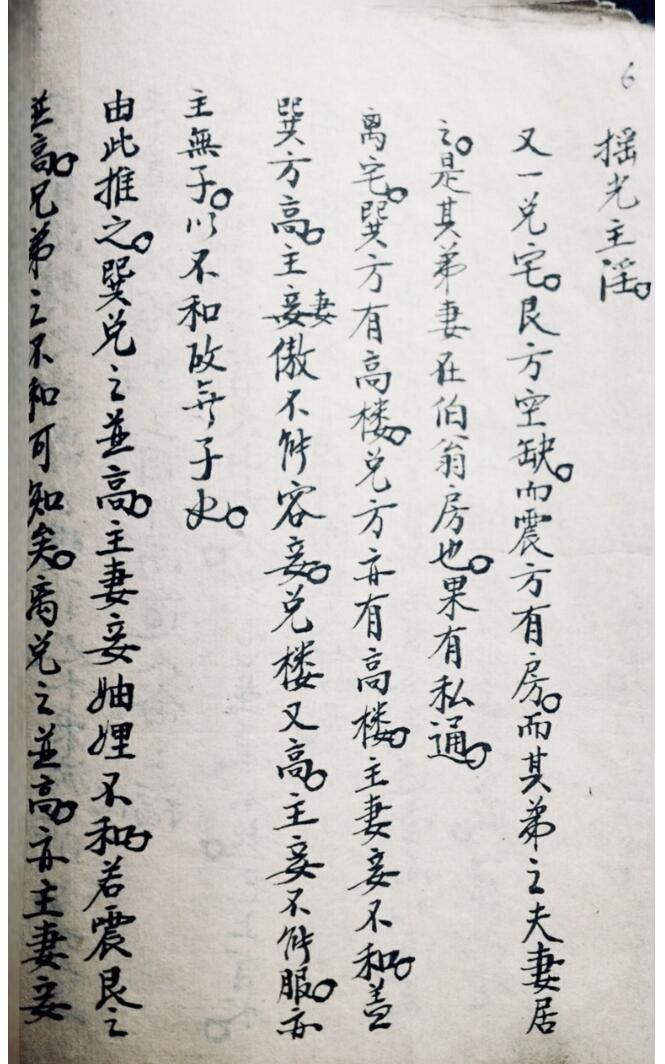 6
摇光主淫。
又一兑宅。艮方空缺。而震方有房。而其弟之夫妻居
之。是其弟妻在伯翁房也。果有私通。
离宅。巽方有高楼。兑方亦有高楼。主妻妾不和。盖
巽方高。主妻傲不能容妾。兑楼又高。主妾不能服。亦
主無子。以不和故無子也。
由此推之。巽兑之並高。主妻妾妯娌不和。若震艮之
並高。兄弟之不和可知矣。离兑之並高。亦主妻妾